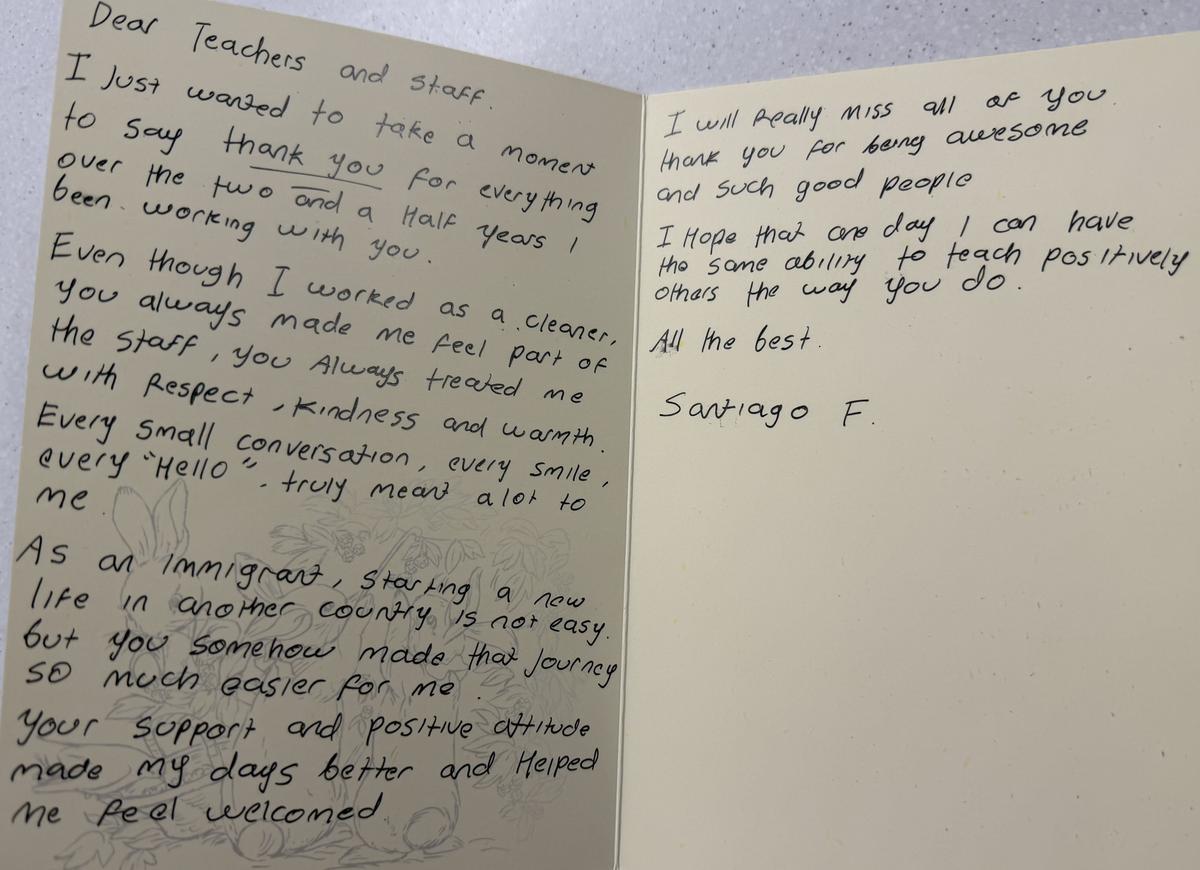 Dear Teachers and Staff.
I Just wanted to take a moment
to say thank you for everything
over the two and a Half years I
been working with you.
Even though I worked as a cleaner,
you always made me feel part of
the staff, you Always treated me
with Respect, kindness and warmth.
Every small conversation, every smile,
every "Hello". truly meant a lot to
me
As an immigrant, starting a new
life in another country is not easy.
but you somehow made that Journey
so much easier for me.
Your support and positive attitude
made my days better and Helped
me feel welcomed
I will Really miss all of you.
thank you for being awesome
and such good people
I Hope that one day I can have
the same ability to teach positively
others the way you do.
All the best.
Santiago F.